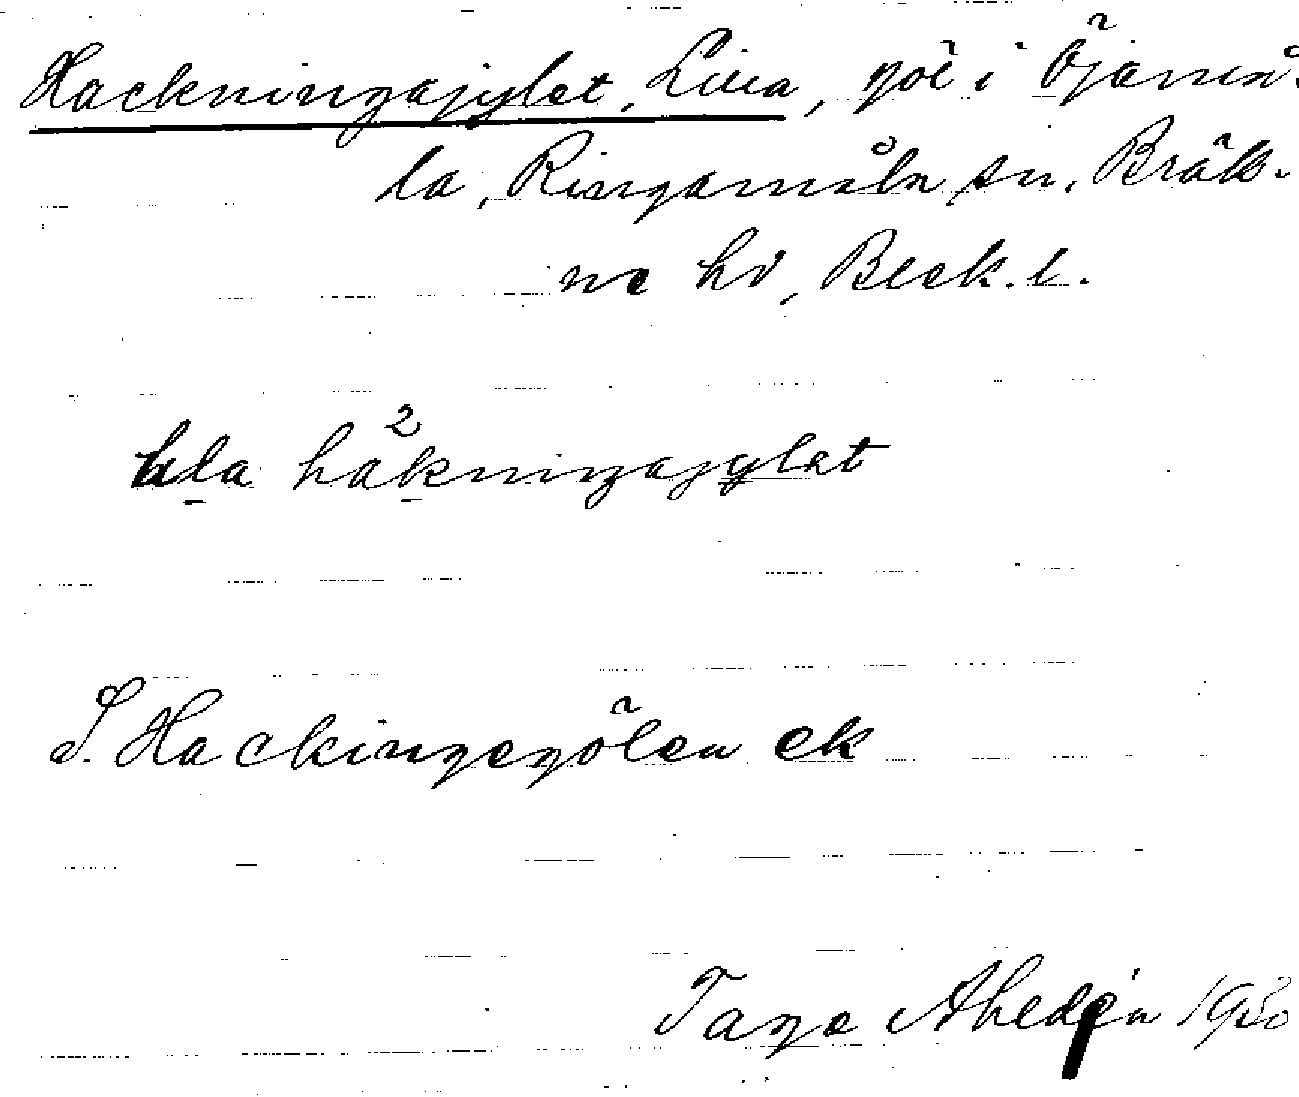 Hackningajylet, Lilla, göl i Öjamåla
la, Ringamåla sn. Bräk-
ne hd, Blek. l.
lila håkningajylet
2
S. Hackingegölen ek
Tage Ahldén 1930